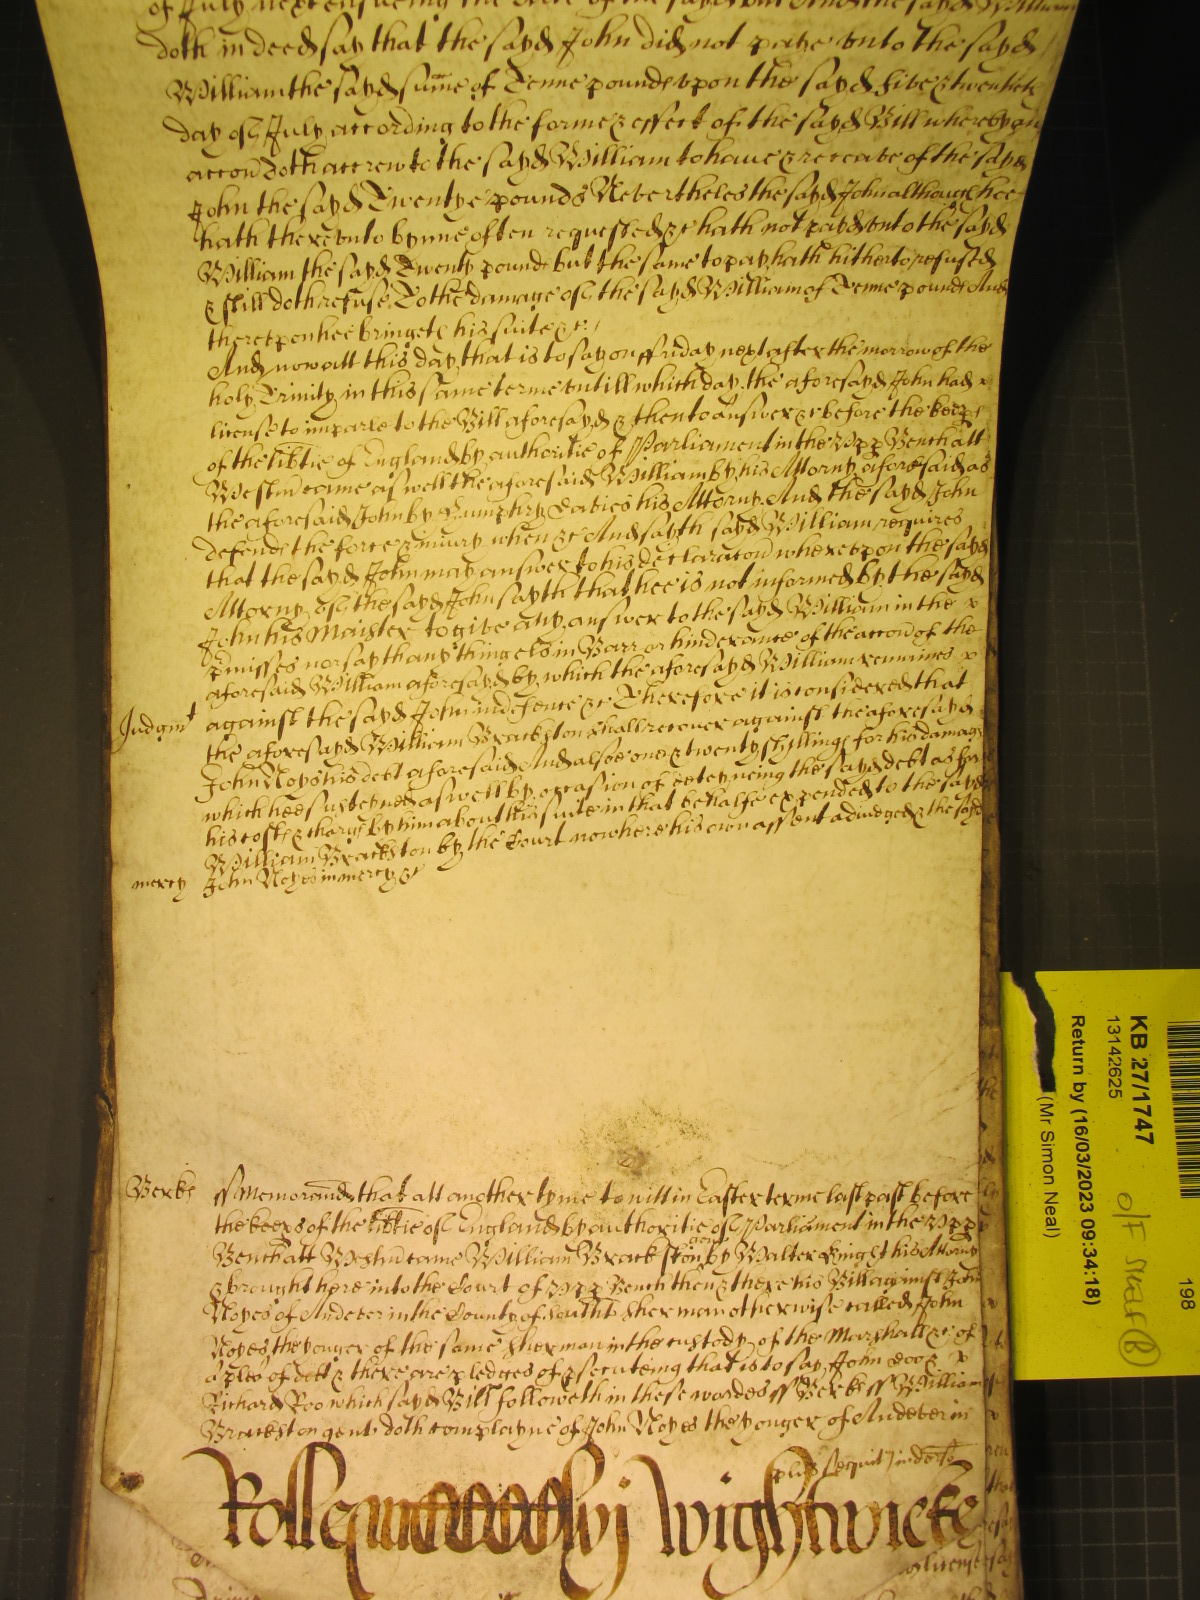 of July next ensueing the date of the sayd Bill And the sayd William
doth in deed say that the sayd John did not paye unto the sayd
William the sayd sume of Tenne pounds upon the sayd five & twenteth
day of July according to the forme & effect of the sayd Bill whereby an
accon doth accrew to the sayd William to have & receave of the sayd
John the sayd Twentye pounds Nevertheles the sayd John although hee
hath thereunto bynne often requested &c hath not payd unto the sayd
William the sayd Twenty pounds but the same to pay hath hitherto refused
& still doth refuse To the damage of the sayd William of Tenne pounds And
thereupon hee bringeth his suite &c
And now att this day that is to say on ffriday next after the morrow of the
holy Trinity in this same terme untill which day the aforesayd John had
license to imparle to the Bill aforesayd & then to answer &c before the keeps
of the libtie of England by authoritie of Parliament in the Upp Bench att
Westm came aswell the aforesaid William by his Attorny aforesaid as
the aforesaid John by Humphry Davies his Attorny And the sayd John
defends the force & iniury when &c And sayth sayd William requires
that the sayd John may answer to his declaracon whereupon the sayd
Attorny of the sayd John sayth that hee is not informed by the sayd
John his Maister to give any answer to the sayd William in the
pmisses nor sayth any thing els in Barr or hinderance of the accon of the
aforesaid William aforesayd by which the aforesayd William remaines
Judgmt against the sayd John undefence &c Therefore it is considered that
the aforesayd William Brackston shall recover against the aforesayd
John Noyes his debt aforesaid And alsoe one & twenty shillings for his damags
which hee susteyned aswell by occasion of deteyneing the sayd debt as for
his costs & chargs by him about his suite in that behalfe expended to the sayd
William Brackston by the Court now here his own assent adiudged & the sayd
mercy John Noyes in mercy &c
Berks ss Memorand that att another tyme to witt in Easter terme last past before
the keeps of the libtie of England by authoritie of Parliament in the Upp
Bench att Westm came William Brackston gent by Walter Knight his Attorny
& brought here into the Court of Upp Bench then & there his Bill against John
Noyes of Andever in the County of Southt Sherman otherwise called John
Noyes the yonger of the same Sherman in the custody of the Marshall &c of
a plea of debt & there are pledges of psecuteing that is to say John Doo &
Richard Roo which sayd Bill followeth in these wordes ss Berks ss William
Brackston gent doth complayne of John Noyes the yonger of Andever in
plus sequit indorso
Rolle Wightwicke
KB 27/1747
13142625
Return by (16/03/2023 09:34:18)
(Mr Simon Neal)
O/F
198